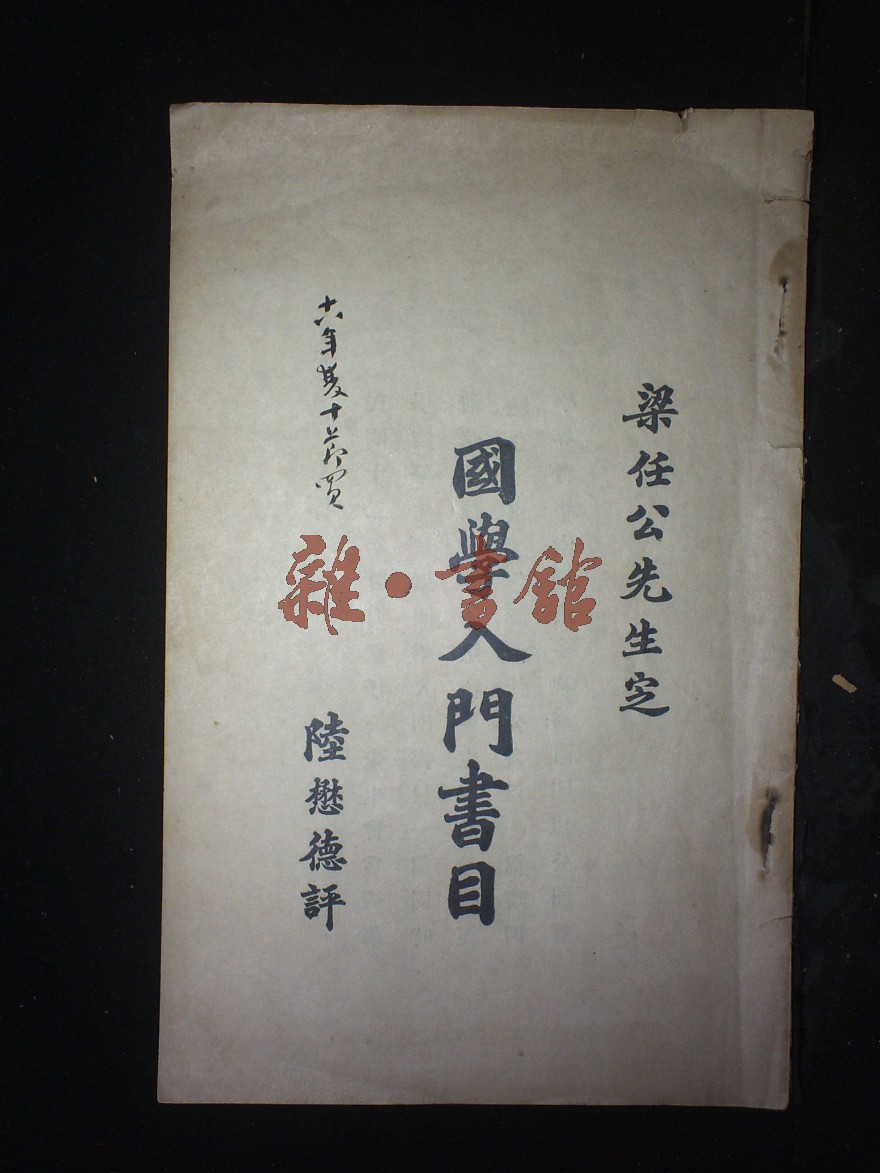 梁任公先生定
國學入門書目
陸懋德評
十六年夏十
買
雜·書館